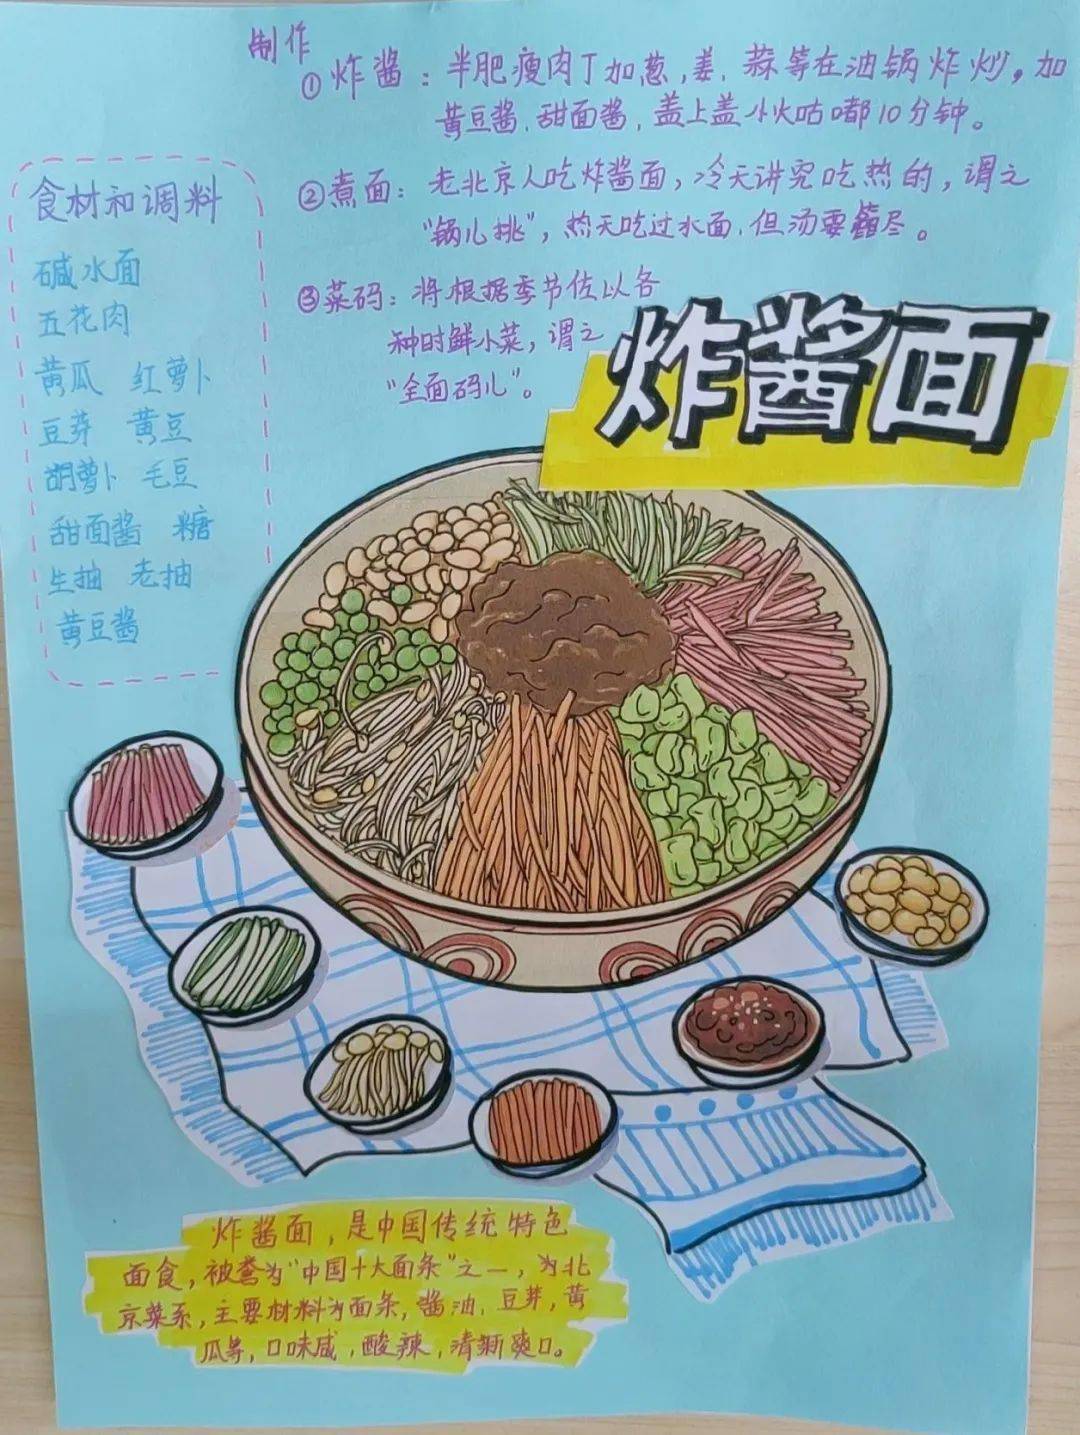 制作
①炸酱：半肥瘦肉丁加葱,姜,蒜等在油锅炸炒，加
黄豆酱、甜面酱，盖上盖小火咕嘟10分钟。
②煮面：老北京人吃炸酱面，冷天讲究吃热的，谓之
“锅儿挑”，热天吃过水面,但汤要篦尽。
③菜码：将根据季节佐以各
种时鲜小菜，谓之
“全面码儿”。
炸酱面
食材和调料
碱水面
五花肉
黄瓜 红萝卜
豆芽 黄豆
胡萝卜 毛豆
甜面酱 糖
生抽 老抽
黄豆酱
炸酱面，是中国传统特色
面食，被誉为“中国十大面条”之一，为北
京菜系，主要材料为面条，酱油、豆芽，黄
瓜等，口味咸，酸辣，清新爽口。